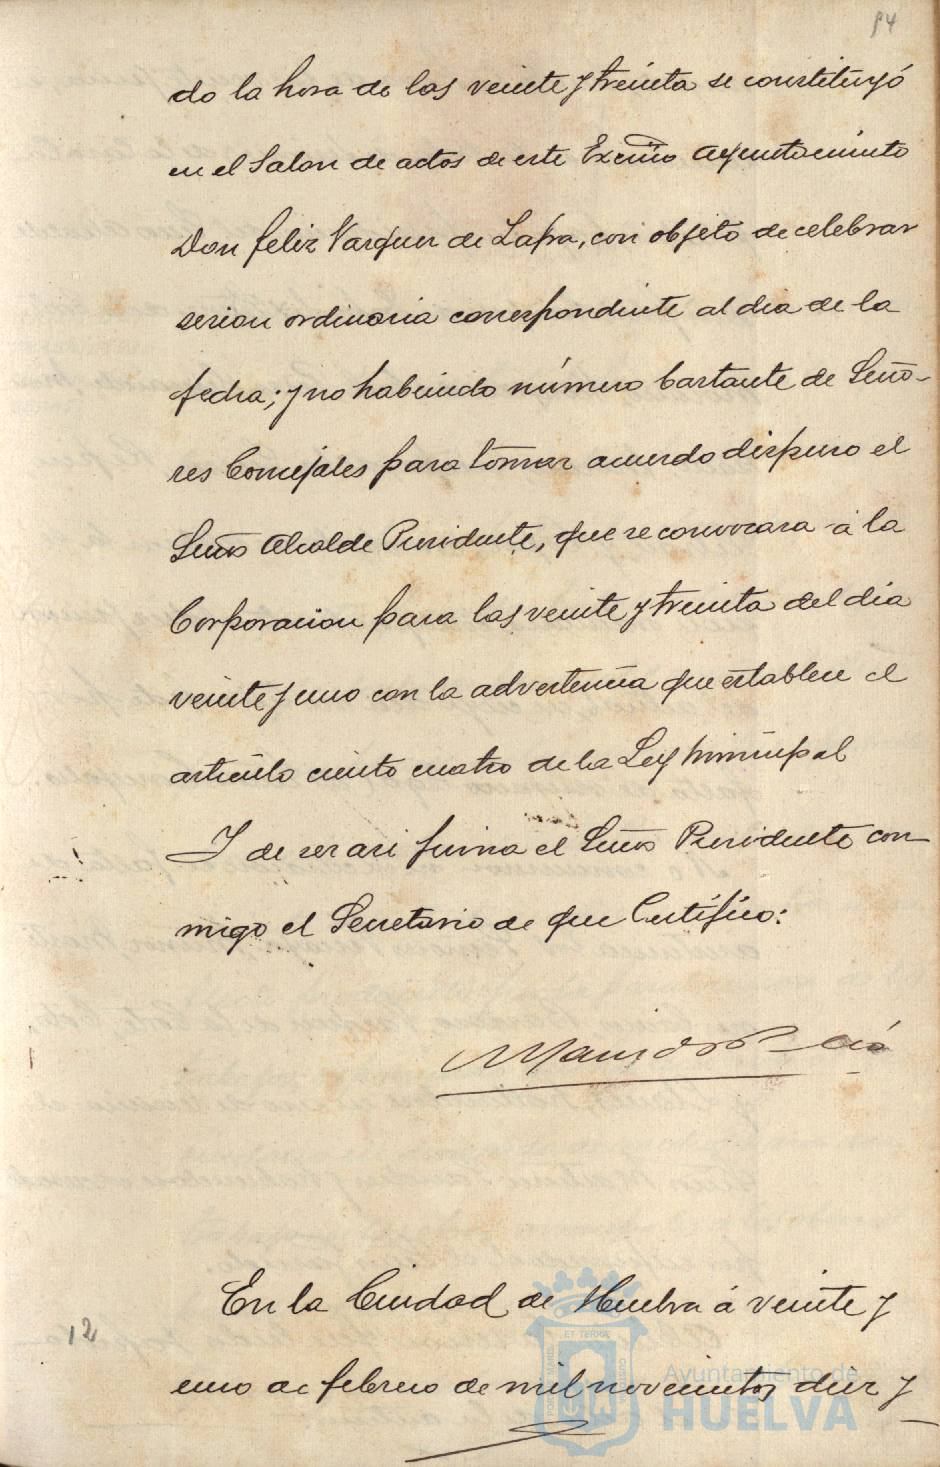 84
do la hora de las veinte y treinta se constituyó
en el Salon de actos de este Excmo Ayuntamiento
Don Felix Vazquez de Zafra, con objeto de celebrar
sesion ordinaria correspondiente al dia de la
fecha; y no habiendo número bastante de Seño-
res Concejales para tomar acuerdo dispuso el
Señor Alcalde Presidente, que se convocara á la
Corporacion para las veinte y treinta del dia
veinte y uno con la advertencia que establece el
artículo ciento cuatro de la Ley Municipal
Y de ser asi firma el Señor Presidente con-
migo el Secretario de que Certifico:
12
En la Ciudad de Huelva á veinte y
uno de febrero de mil novecientos diez y
Ayuntamiento de
HUELVA